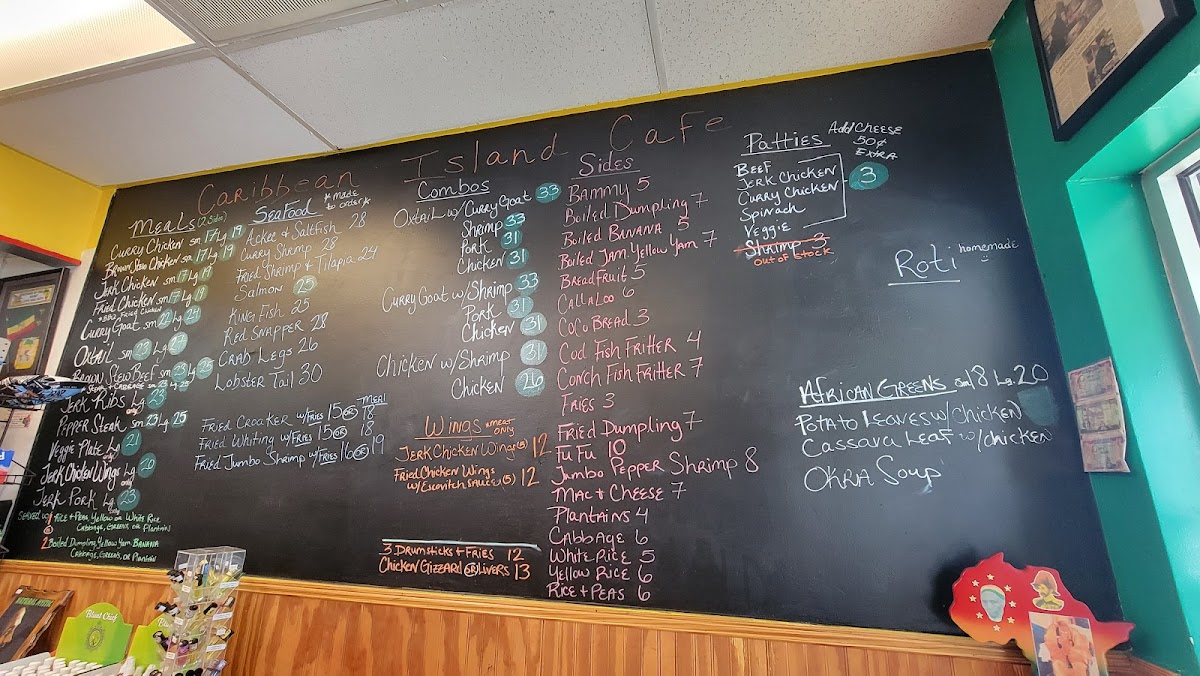 Caribbean Island Cafe
Meals (2 Sides)
Curry Chicken sm 17 Lg 19
Brown Stew Chicken sm 17 Lg 19
Jerk Chicken sm 17 Lg 19
Fried Chicken sm 17 Lg 19
Curry Goat sm 22 Lg 24
Oxtail sm 23 Lg 27
Brown Stew Beef sm 23 Lg 25
Jerk Ribs Lg 23
Pepper Steak sm 23 Lg 25
Veggie Plate Lg 21
Jerk Chicken Wings Lg 20
Jerk Pork Lg 23
Served w/
1 Rice + Peas, Yellow or White Rice
Cabbage, Greens, or Plantain
OR
2 Boiled Dumpling, Yellow Yam, Banana
Cabbage, Greens, or Plantain
Seafood *made to order*
Ackee & Saltfish 28
Curry Shrimp 28
Fried Shrimp & Tilapia 24
Salmon 25
King Fish 25
Red Snapper 28
Crab Legs 26
Lobster Tail 30
Meal
Fried Croaker w/Fries 15 OR 18
Fried Whiting w/Fries 15 OR 18
Fried Jumbo Shrimp w/Fries 16 OR 19
Combos
Oxtail w/Curry Goat 33
Shrimp 33
Pork 31
Chicken 31
Curry Goat w/Shrimp 33
Pork 31
Chicken 31
Chicken w/Shrimp 31
Chicken 26
Wings *meat only
Jerk Chicken Wings (5) 12
Fried Chicken Wings
w/Escovitch Sauce (5) 12
3 Drumsticks + Fries 12
Chicken Gizzard OR Livers 13
Sides
Bammy 5
Boiled Dumpling 7
Boiled Banana 5
Boiled Jam Yellow Yam 7
Breadfruit 5
Callaloo 6
Coco Bread 3
Cod Fish Fritter 4
Conch Fish Fritter 7
Fries 3
Fried Dumpling 7
Fu Fu 10
Jumbo Pepper Shrimp 8
Mac + Cheese 7
Plantains 4
Cabbage 6
White Rice 5
Yellow Rice 6
Rice + Peas 6
Patties
Add Cheese
50¢
Extra
Beef
Jerk Chicken
Curry Chicken 3
Spinach
Veggie
Shrimp 3
Out of Stock
Roti homemade
African Greens sm 18 Lg. 20
Potato Leaves w/Chicken
Cassava Leaf w/chicken
Okra Soup
Blunt Chief